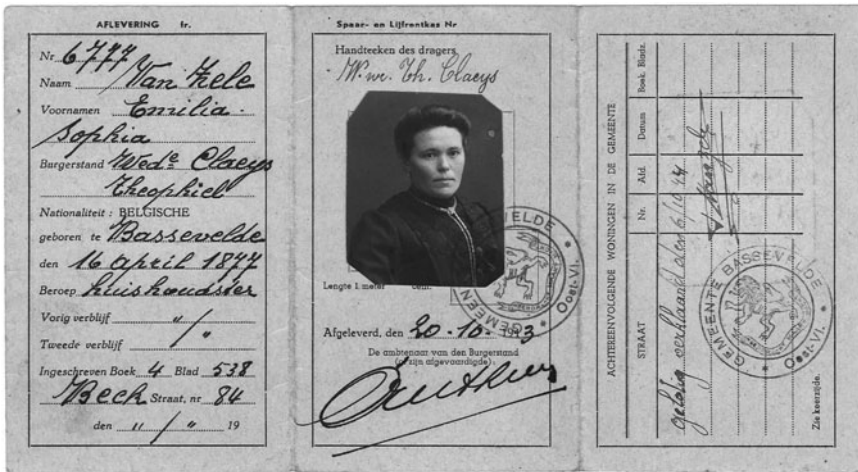 AFLEVERING fr.
Nr 6777
Naam Van Hele
Voornamen Emilia
Sophia
Burgerstand Wede Claeys
Theophiel
Nationaliteit : BELGISCHE
geboren te Bassevelde
den 16 April 1877
Beroep huishoudster
Vorig verblijf " / "
Tweede verblijf / "
Ingeschreven Boek 4 Blad 538
Beek Straat, nr 84
den " / " 19
Spaar- en Lijfrentkas Nr
Handteeken des dragers,
W. we. Th. Claeys
Lengte 1 meter cent.
GEMEEN VELDE * Oost-Vl.
Afgeleverd, den 20-10- 3
De ambtenaar van den Burgerstand
(of zijn afgevaardigde).
ACHTEREENVOLGENDE WONINGEN IN DE GEMEENTE
STRAAT Nr. Afd Datum Boek. Bladz.
geldig verklaard den 6/10/44
GEMEENTE BASSEVELDE * Oost-Vl. *
Zie keerzijde.